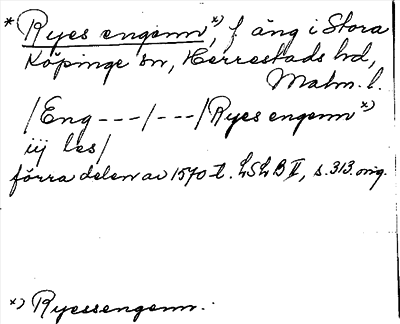 * Ryes engenn *), f äng i Stora
Köpinge sn, Herrestads hd,
Malm. l.
/Eng ---/---/Ryes engenn *)
iij les/
förra delen av 1570-t. LSLB II, s. 313. orig.
*) Ryessengenn.